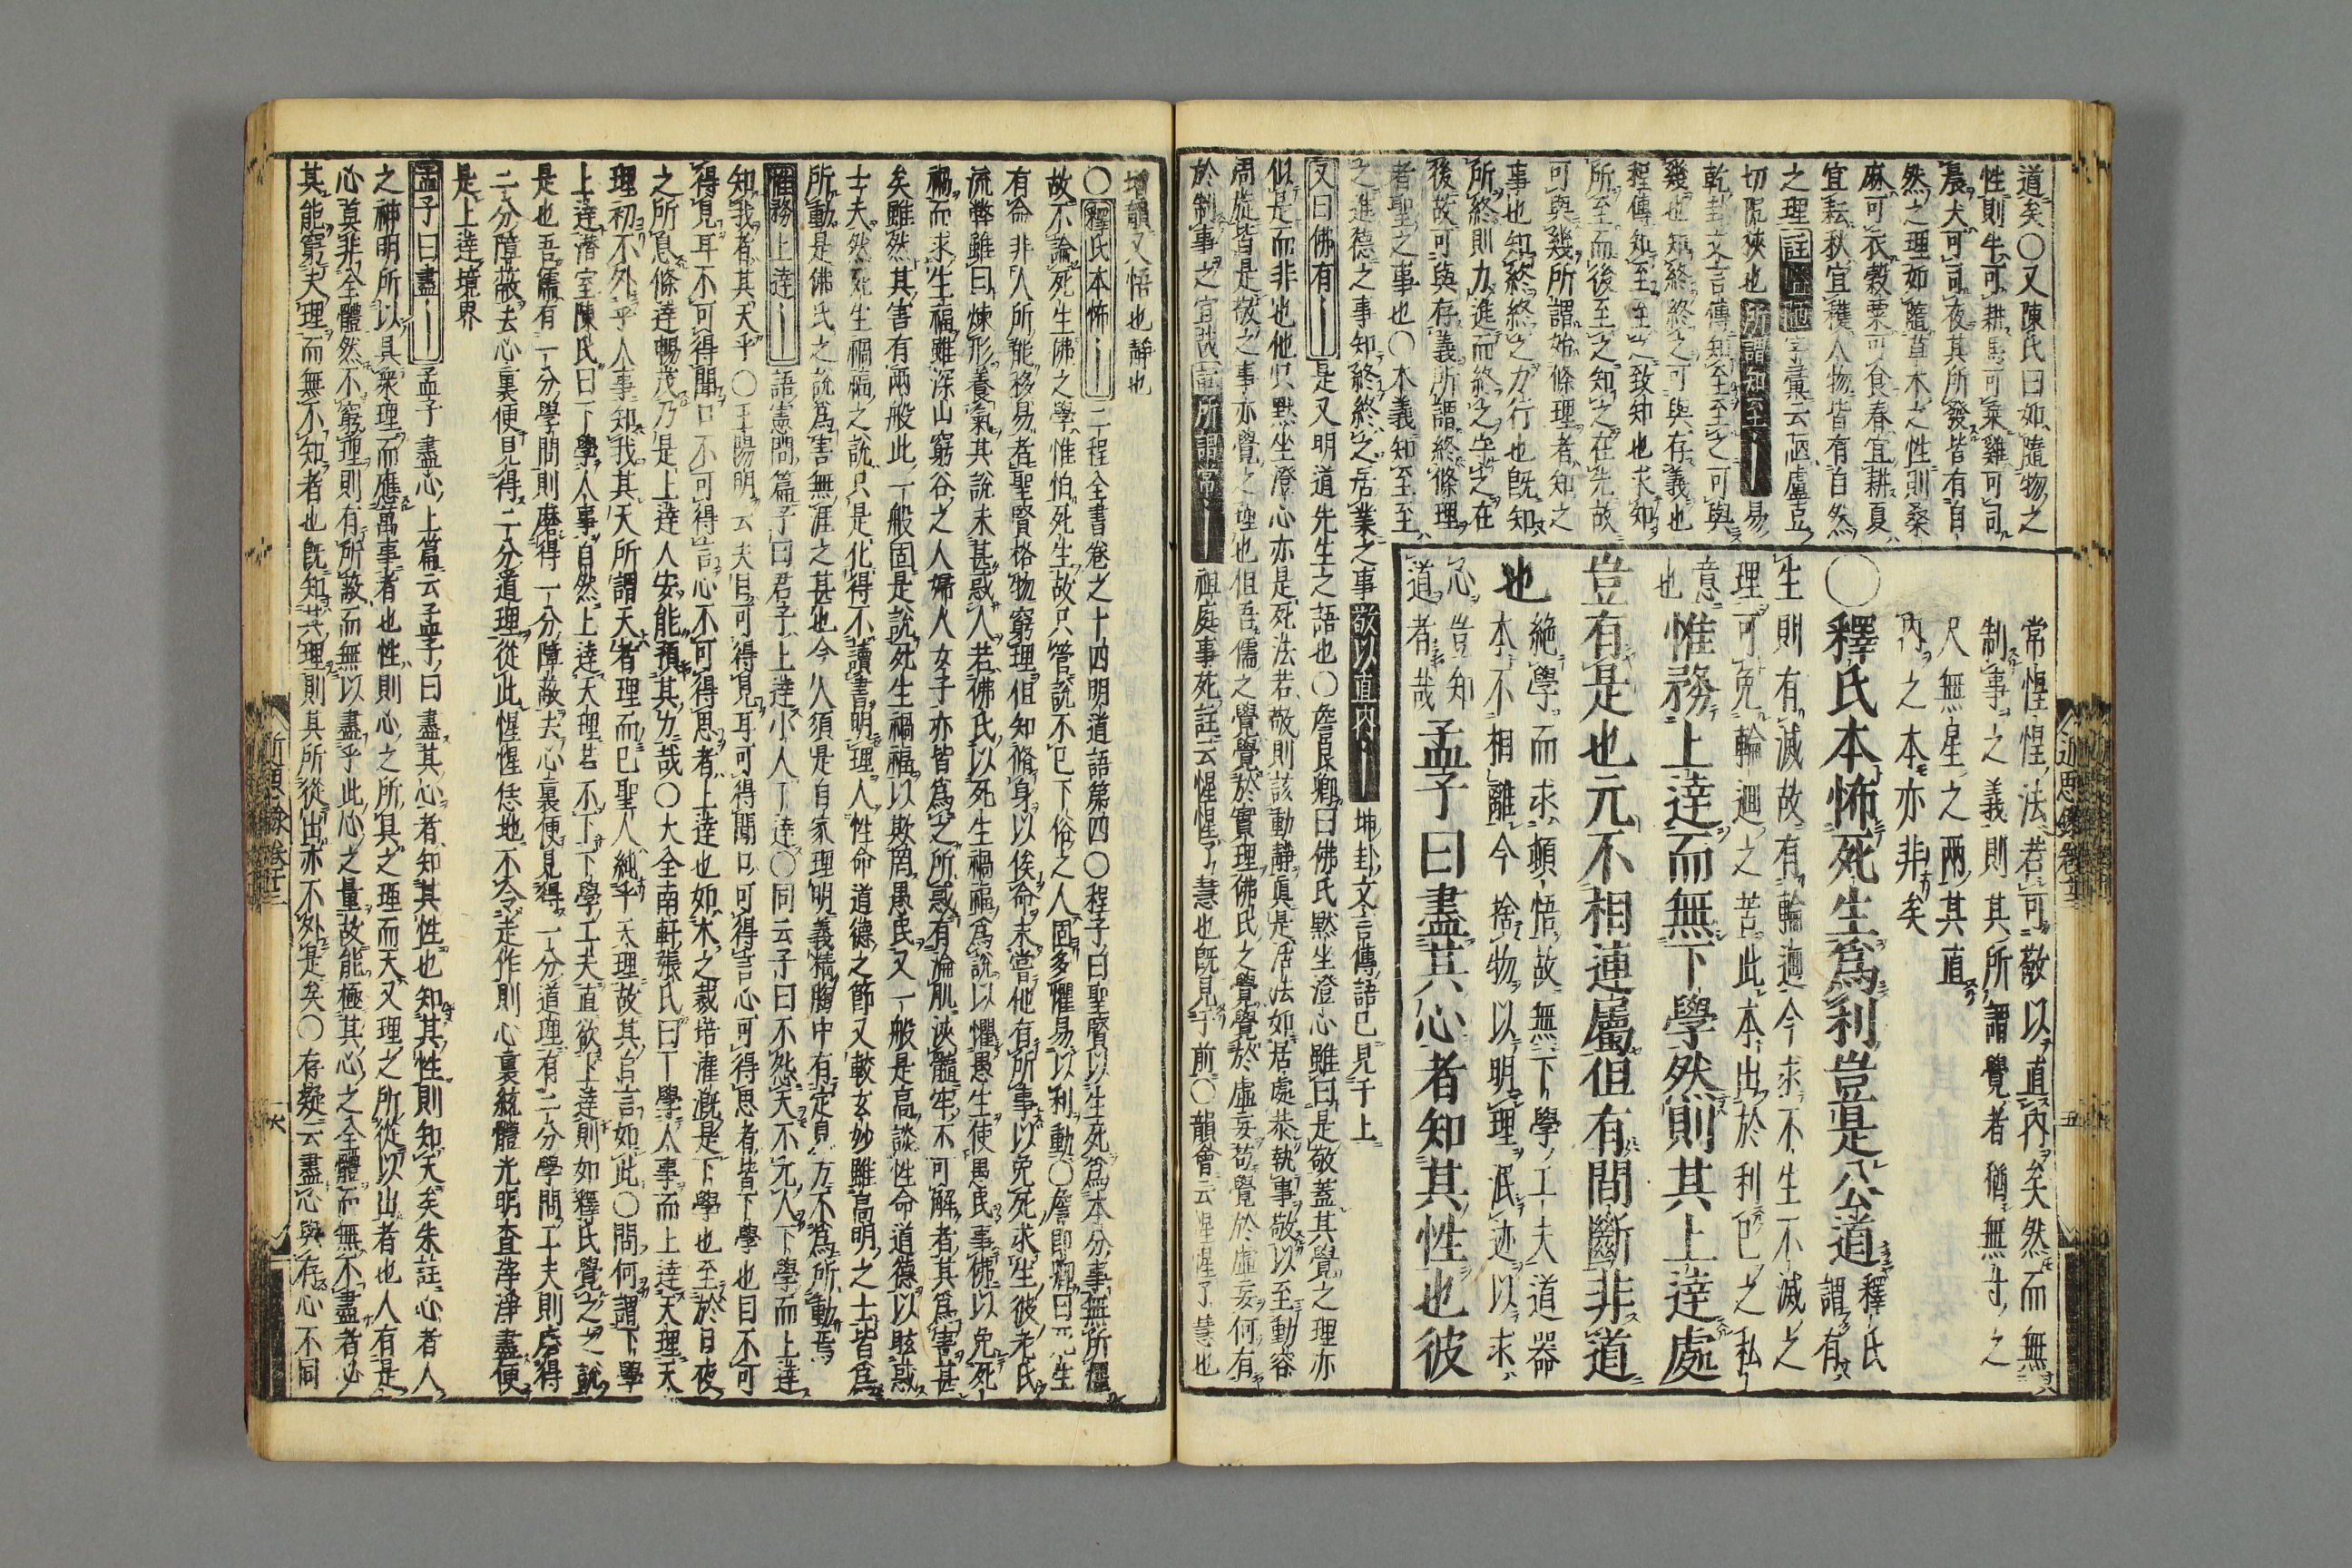 道矣○又陳氏曰如隨物之
性則牛可耕馬可乘雞可司
晨犬可司夜其所發皆有自
然之理如隨草木之性則桑
麻可衣穀粟可食春宜耕夏
宜耘秋宜穫人物皆有自然
之理註
切隘狹也所謂知至易
乾卦文言傳知至至之可與
幾也知終終之可與存義也
程傳知至至之致知也求知
所至而後至之知之在先故
可與幾所謂始條理者知之
事也知終終之力行也既知
所終則力進而終之守之在
後故可與存義所謂終條理
者聖之事也○本義知至至
之進德之事知終終之居業之事敬以直内坤卦文言傳語已見于上
又曰佛有是又明道先生之語也○詹良卿曰佛氏默坐澄心雖曰是敬蓋其覺之理亦
似是而非也他只默坐澄心亦是死法若敬則該動靜眞是活法如居處恭執事敬以至動容
周旋皆是敬之事亦覺之理也但吾儒之覺覺於實理佛氏之覺覺於虛妄苟覺於虛妄何有
於制事之宜哉註所謂常祖庭事苑註云惺惺了慧也既見于前○韻會云惺惺了慧也
常惺惺法若可敬以直内矣然而無
制事之義則其所謂覺者猶無寸之
尺無星之兩其直
内之本亦非矣
○釋氏本怖死生爲利豈是公道釋氏
謂有
生則有滅故有輪迴今求不生不滅之
理可免輪迴之苦此本出於利己之私
意
也惟務上達而無下學然則其上達處
豈有是也元不相連屬但有間斷非道
也絶學而求頓悟故無下學工夫道器
本不相離今捨物以明理泯迹以求
心豈知
道者哉孟子曰盡其心者知其性也彼
近思錄卷十三
五
又悟也靜也
○釋氏本怖二程全書卷之十四明道語第四○程子曰聖賢以生死爲本分事無所懼
故不論死生佛之學惟怕死生故只管說不已下俗之人固多懼易以利動○詹卿曰元生
有命非人所能移易者聖賢格物窮理但知脩身以俟命未嘗他有所事以免死求生彼老氏
流弊雖曰煉形養氣其說未甚惑人若佛氏以死生禍福爲說以懼愚生使愚民事佛以免死
禍而求生福雖深山窮谷之人婦人女子亦皆爲之所惑有淪肌浹髓牢不可解者其爲害甚
矣雖然其害有兩般此一般固是說死生禍福以欺罔愚民又一般是高談性命道德以眩惑
士夫然死生禍福之說只是化得不讀書明理人性命道德之節又較玄妙雖高明之士皆爲
所動是佛氏之說爲害無涯之甚也今人須是自家理明義精胸中有定見方不爲所動焉
惟務上達語憲問篇子曰君子上達小人下達○同云子曰不怨天不尤人下學而上達
知我者其天乎○王陽明云夫目可得見耳可得聞口可得言心可得思者皆下學也目不可
得見耳不可得聞口不可得言心不可得思者上達也如木之栽培灌漑是下學也至於日夜
之所息條達暢茂乃是上達人安能預其力哉○大全南軒張氏曰下學人事而上達天理天
理初不外乎人事知我其天所謂天者理而已聖人純乎天理故其自言如此○問何謂下學
上達潛室陳氏曰下學人事自然上達天理若不下下學工夫直欲上達則如釋氏覺之之說
是也吾儒有一分學問則磨得一分障蔽去心裏便見得一分道理有二分學問工夫則磨得
二分障蔽去心裏便見得二分道理從此惺惺恁地不令走作則心裏統體光明査滓淨盡便
是上達境界
孟子曰盡孟子盡心上篇云孟子曰盡其心者知其性也知其性則知天矣朱註心者人
之神明所以具衆理而應萬事者也性則心之所具之理而天又理之所從以出者也人有是
心莫非全體然不窮理則有所蔽而無以盡乎此心之量故能極其心之全體而無不盡者必
其能窮夫理而無不知者也既知其理則其所從出亦不外是矣○存疑云盡心與存心不同
近思錄卷十三
六